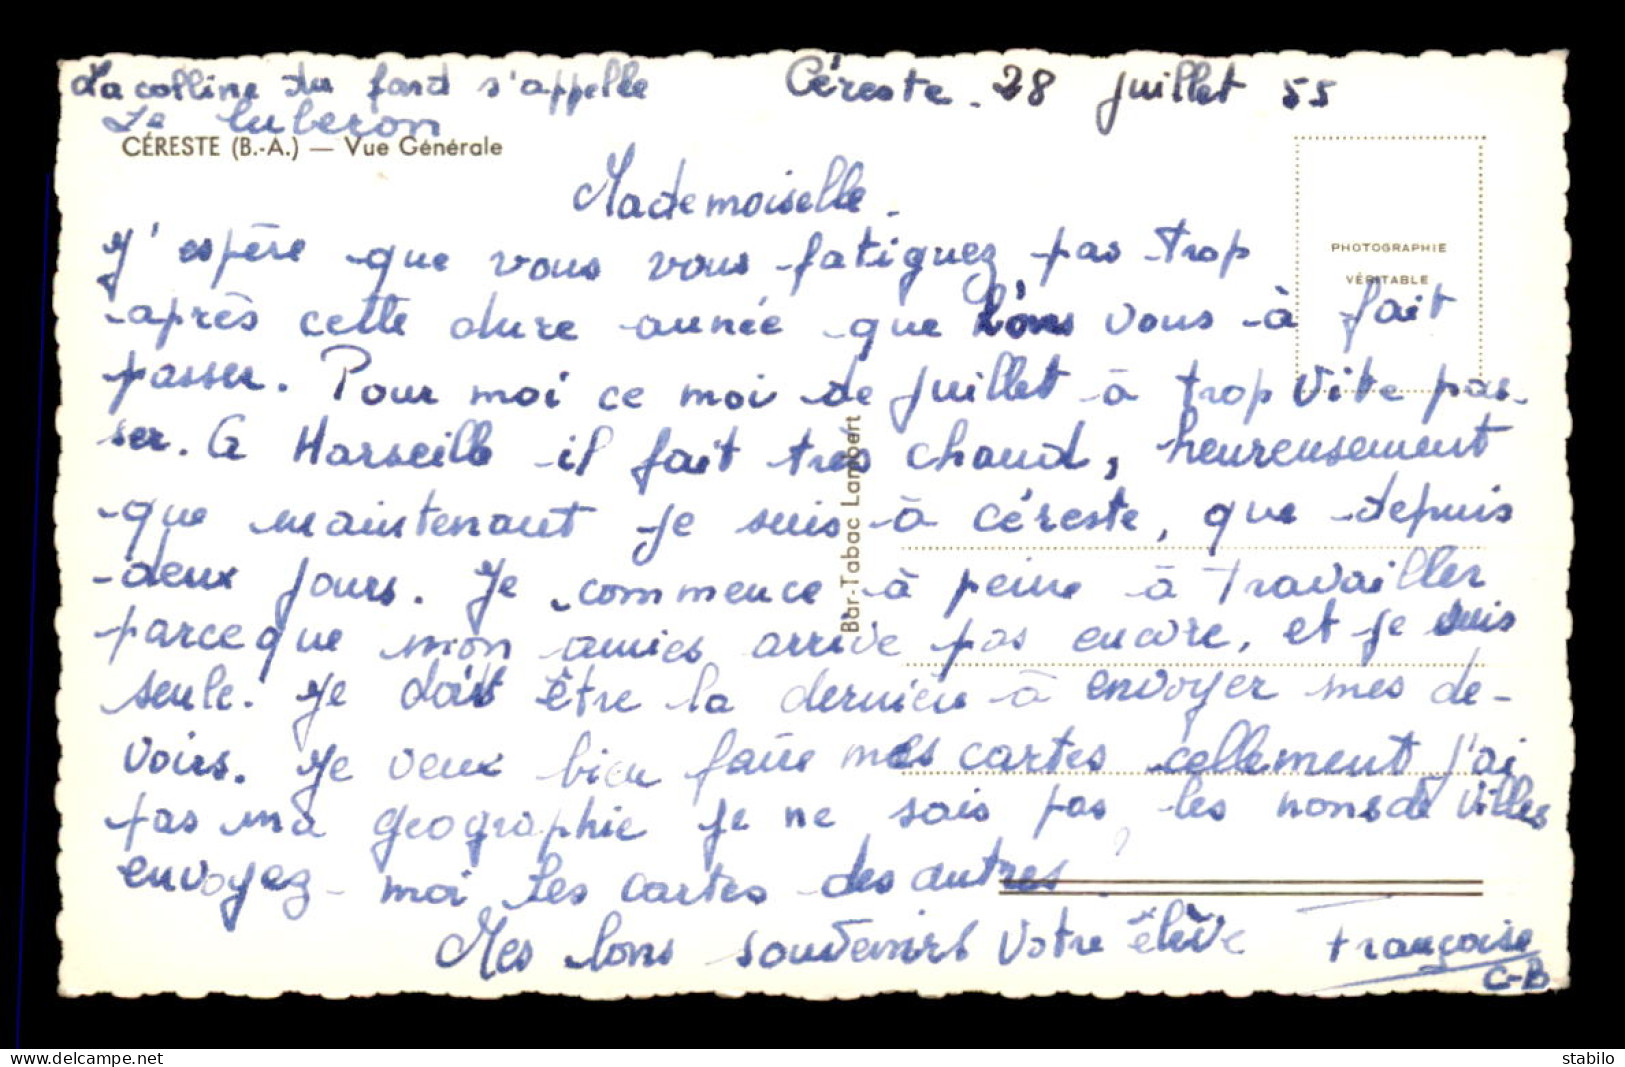 La colline du fond s'appelle
Le luberon
Céreste. 28 juillet 55
CÉRESTE (B.-A.) — Vue Générale
PHOTOGRAPHIE
VÉRITABLE
Mademoiselle.
J'espère que vous vous fatiguez pas trop
après cette dure année que l'ons vous à fait
passer. Pour moi ce moi de juillet à trop vite pas-
ser. A Marseille il fait très chaud, heureusement
que maintenant je suis à céreste, que depuis
deux jours. Je commence à peine à travailler
parceque mon amies arrive pas encore, et je suis
seule. Je doit être la dernière à envoyer mes de-
voirs. Je veux bien faire mes cartes cellement j'ai
pas ma geographie je ne sais pas les noms de villes
envoyez-moi les cartes des autres.
Mes bons souvenirs Votre élève Françoise
C-B
Bar-Tabac Lambert
www.delcampe.net
labelleepoque
stabilo